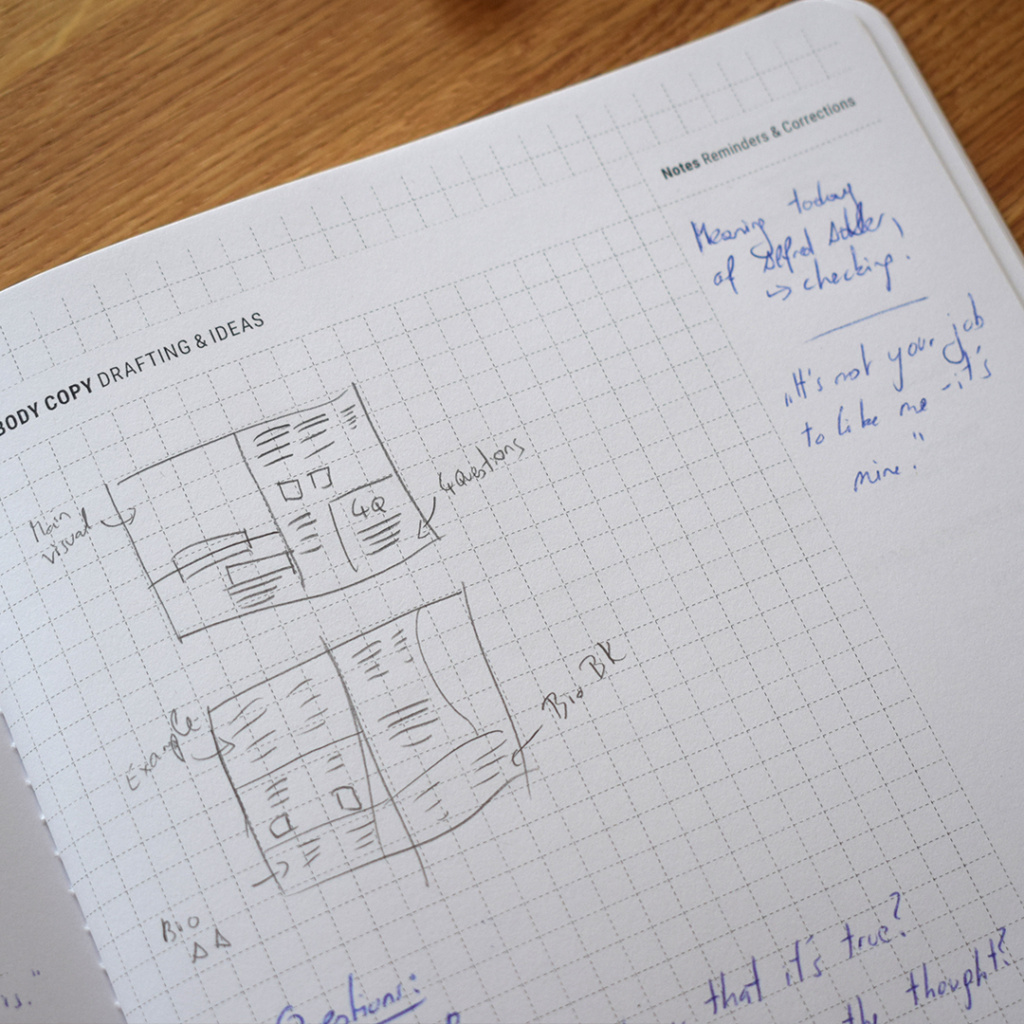 Notes Reminders & Corrections
Meaning today
of Alfred Adler,
→ checking.
"It's not your job
to like me - it's
mine."
BODY COPY DRAFTING & IDEAS
Main
visual
4Q
4 Questions
Example
Bio BK
Bio
AA
is."
Questions:
that it's true?
the thought?